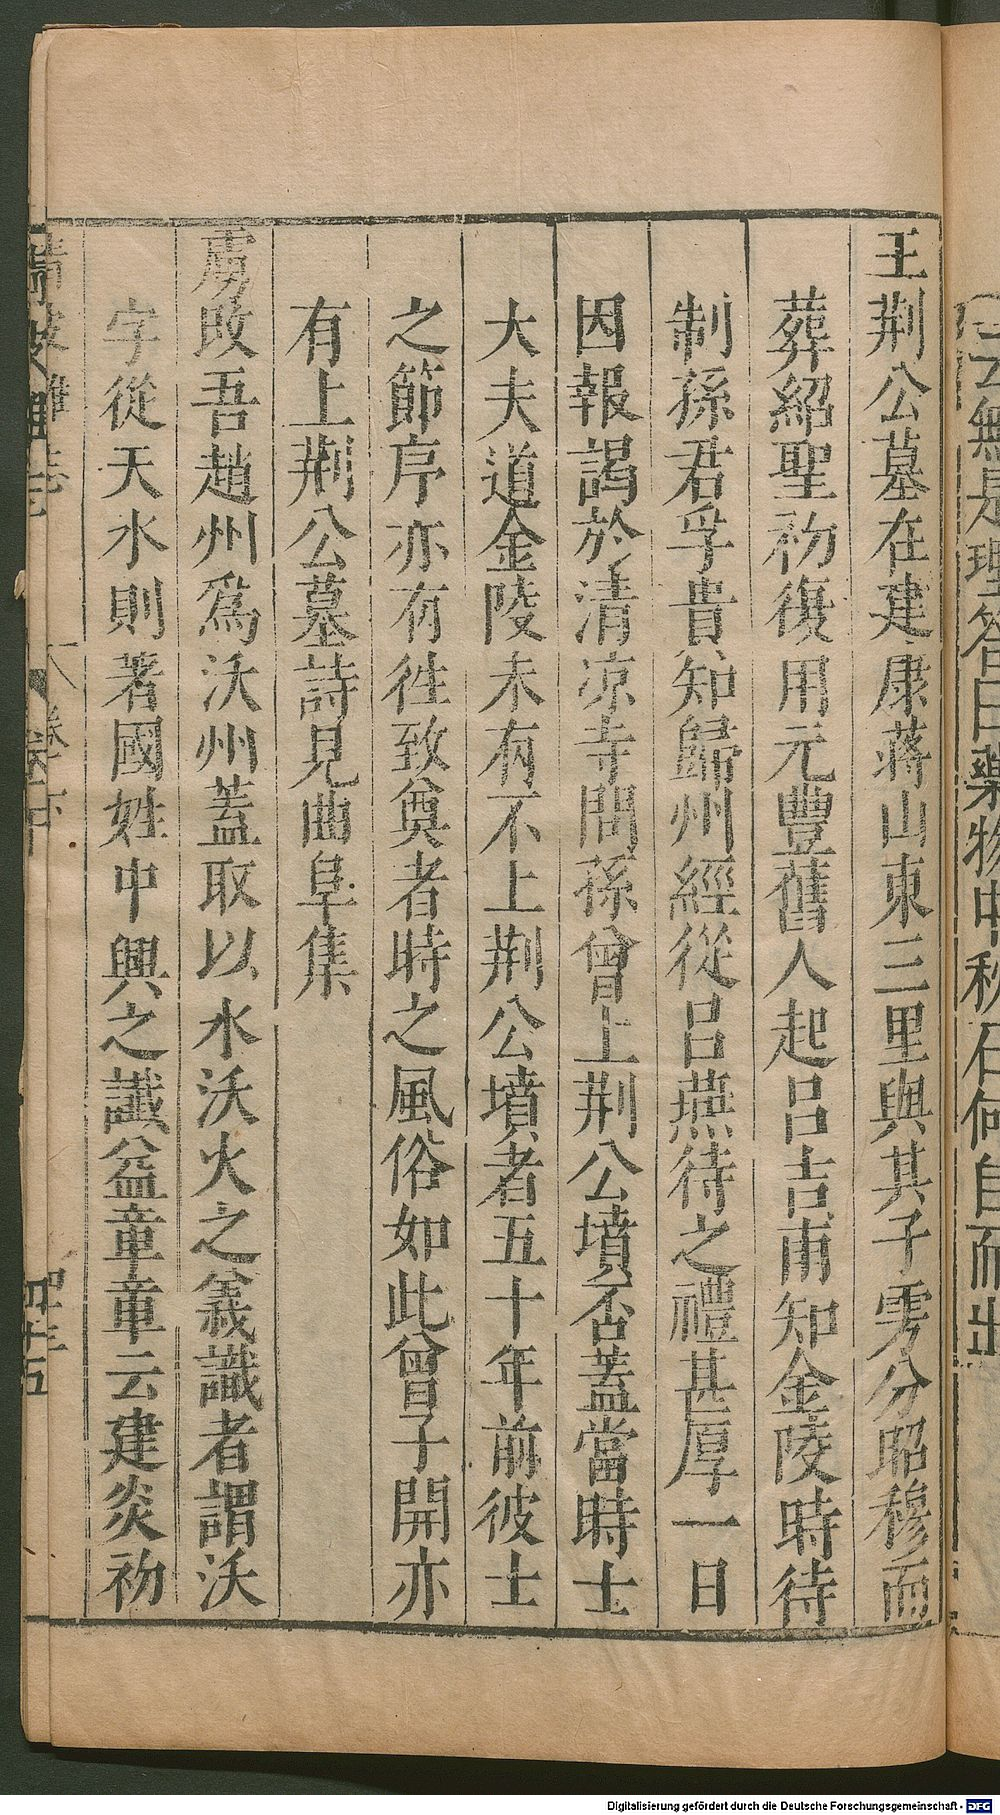 王荆公墓在建康蔣山東三里與其子雱分昭穆而
葬紹聖初復用元豐舊人起呂吉甫知金陵時待
制孫君孚貴知歸州經從呂燕待之禮甚厚一日
因報謁於清凉寺問孫曾上荆公墳否蓋當時士
大夫道金陵未有不上荆公墳者五十年前彼士
之節序亦有徃致奠者時之風俗如此曾子開亦
有上荆公墓詩見曲阜集
虜改吾趙州爲沃州蓋取以水沃火之義識者謂沃
字從天水則著國姓中興之讖益章章云建炎初
Digitalisierung gefördert durch die Deutsche Forschungsgemeinschaft - DFG